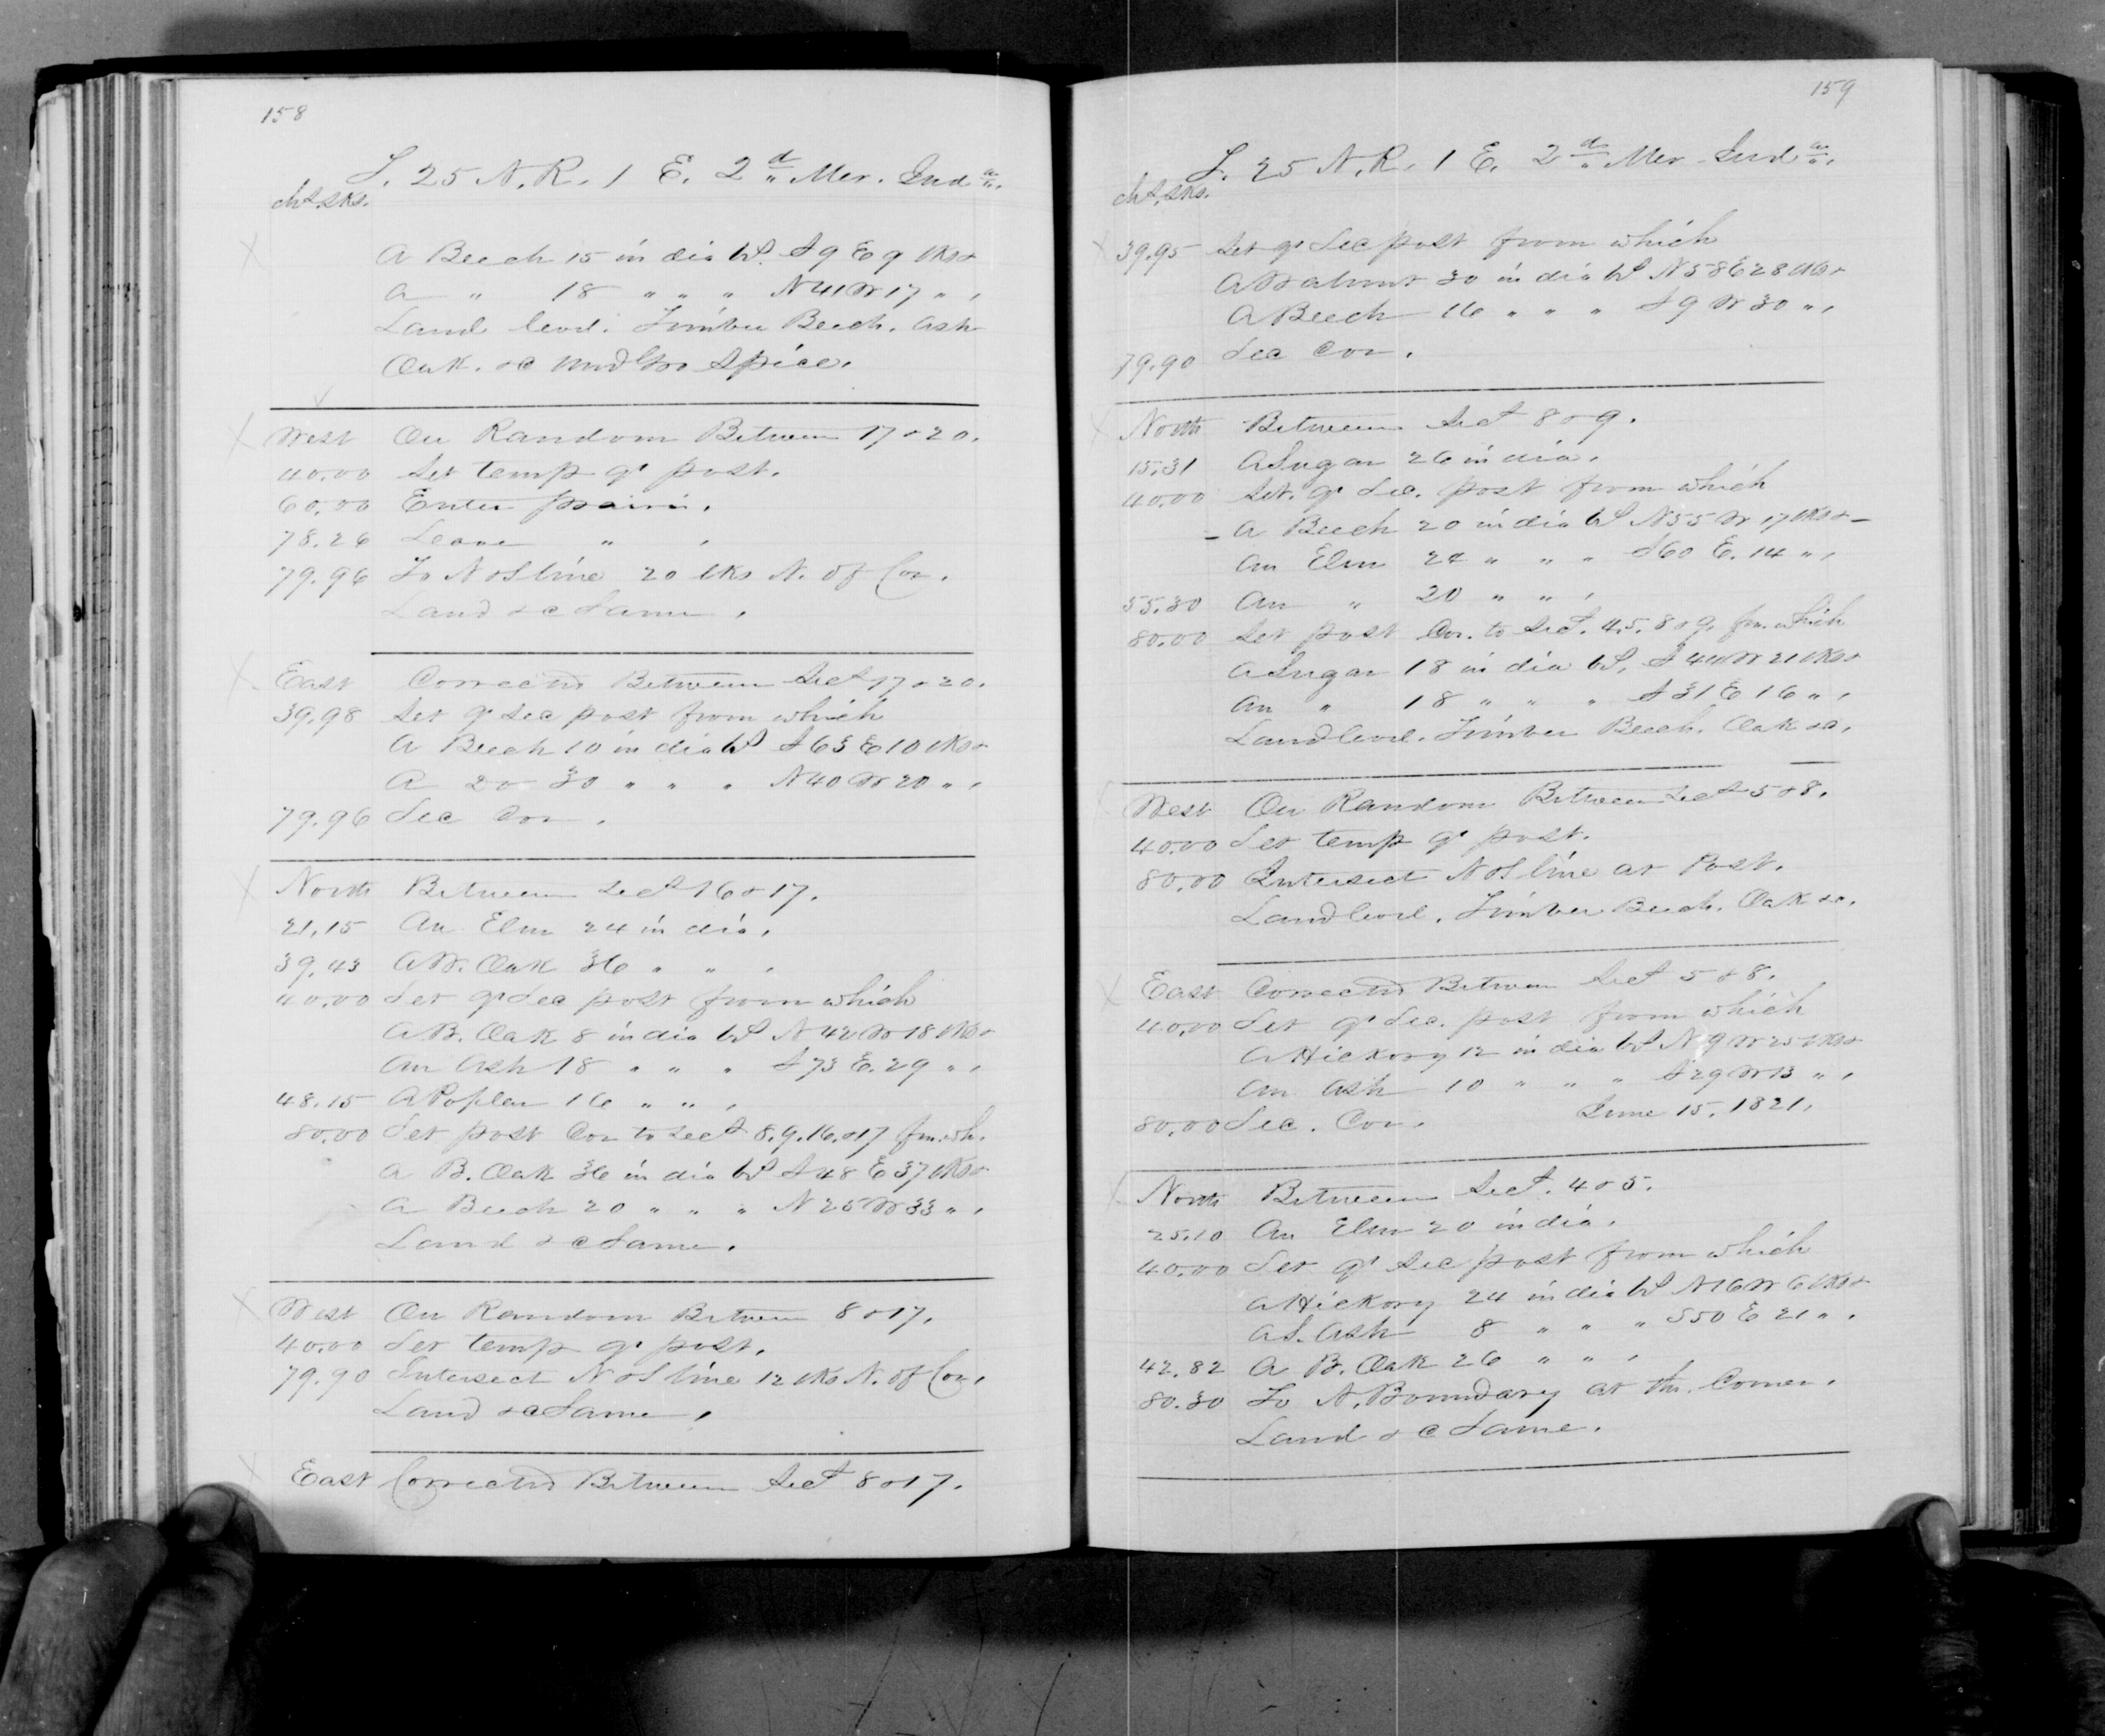 158
T. 25 N. R. 1 E. 2d Mer. Inda.
chs. lks.
A Beech 15 in dia bs. S 9 E 9 lks &
a " 18 " " " N 41 W 17 " ,
Land level. Timber Beech. Ash
Oak. &c Und Gro Spice.
West On Random Between 17 & 20.
40.00 Set temp qr post.
60.00 Enter prairie.
78.26 Leave " ,
79.96 To N & S line 20 lks N. of Cor.
Land &c Same.
East Corrected Between Secs 17 & 20.
39.98 Set qr Sec post from which
A Beech 10 in dia bs S 63 E 10 lks &
A do 30 " " " N 40 W 20 " ,
79.96 Sec Cor.
North Between Secs 16 & 17.
21.15 An Elm 24 in dia,
39.43 A W. Oak 36 " " ,
40.00 Set qr Sec post from which
A B. Oak 8 in dia bs N 42 W 18 lks &
An Ash 18 " " " S 73 E. 29 " ,
48.15 A Poplar 16 " " ,
80.00 Set post Cor to Secs 8. 9. 16. & 17 fm. wh.
A B. Oak 36 in dia bs S 48 E 37 lks &
A Beech 20 " " " N 25 W 33 " ,
Land &c Same.
West On Random Between 8 & 17.
40.00 Set temp qr post.
79.90 Intersect N & S line 12 lks N. of Cor,
Land &c Same,
East Corrected Between Secs 8 & 17.
159
T. 25 N. R. 1 E. 2d Mer Inda.
chs. lks.
39.95 Set qr Sec post from which
A Walnut 30 in dia bs N 58 E 28 lks &
A Beech 16 " " " S 9 W 30 " ,
79.90 Sec Cor.
North Between Secs 8 & 9.
15.31 A Sugar 26 in dia.
40.00 Set. qr Sec. post from which
A Beech 20 in dia bs N 55 W 17 lks &
An Elm 24 " " " S 60 E. 14 " ,
55.30 An " 20 " " ,
80.00 Set post Cor. to Secs. 4. 5. 8 & 9. fm. which
A Sugar 18 in dia bs. S 44 W 21 lks &
An " 18 " " " S 31 E 16 " ,
Land level. Timber Beech. Oak &c.
West On Random Between Secs 5 & 8.
40.00 Set temp qr post.
80.00 Intersect N & S line at Post.
Land level. Timber Beech. Oak &c.
East Corrected Between Secs 5 & 8.
40.00 Set qr Sec. post from which
A Hickory 12 in dia bs N 9 W 25 lks &
An Ash 10 " " " S 29 W 13 " ,
80.00 Sec. Cor. June 15. 1821.
North Between Secs. 4 & 5.
25.10 An Elm 20 in dia.
40.00 Set qr Sec post from which
A Hickory 24 in dia bs N 16 W 6 lks &
A S. Ash 8 " " " S 50 E 21 " .
42.82 A B. Oak 26 " " ,
80.30 To N. Boundary at the Corner.
Land &c Same.